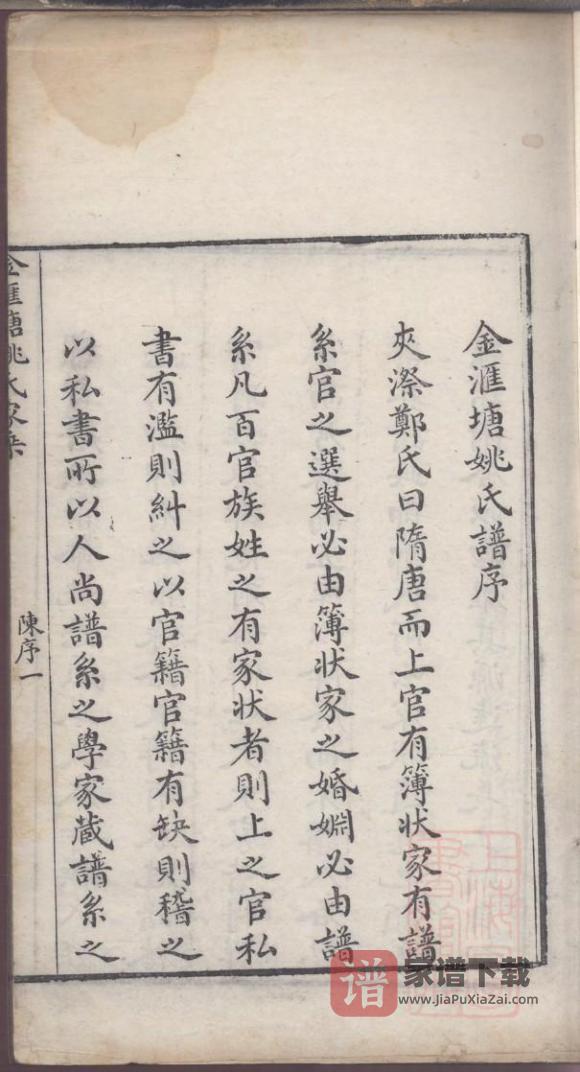 金滙塘姚氏譜序
夾漈鄭氏曰隋唐而上官有簿狀家有譜
系官之選舉必由簿狀家之婚姻必由譜
系凡百官族姓之有家狀者則上之官私
書有濫則糾之以官籍官籍有缺則稽之
以私書所以人尚譜系之學家蔵譜系之
金滙塘姚氏家乘
陳序一
谱
家谱下载
www.JiaPuXiaZai.com